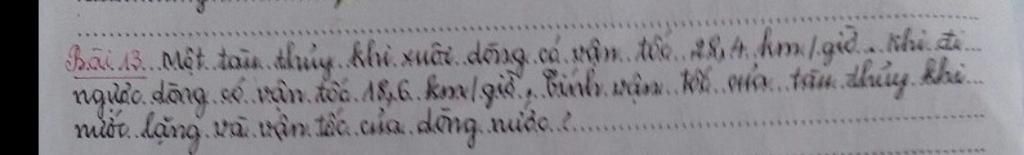 Bài 13. Một tàu thủy khi xuôi dòng có vận tốc 28,4 km/giờ, khi đi
ngược dòng có vận tốc 18,6 km/giờ, Tính vận tốc của tàu thủy khi
nước lặng và vận tốc của dòng nước?